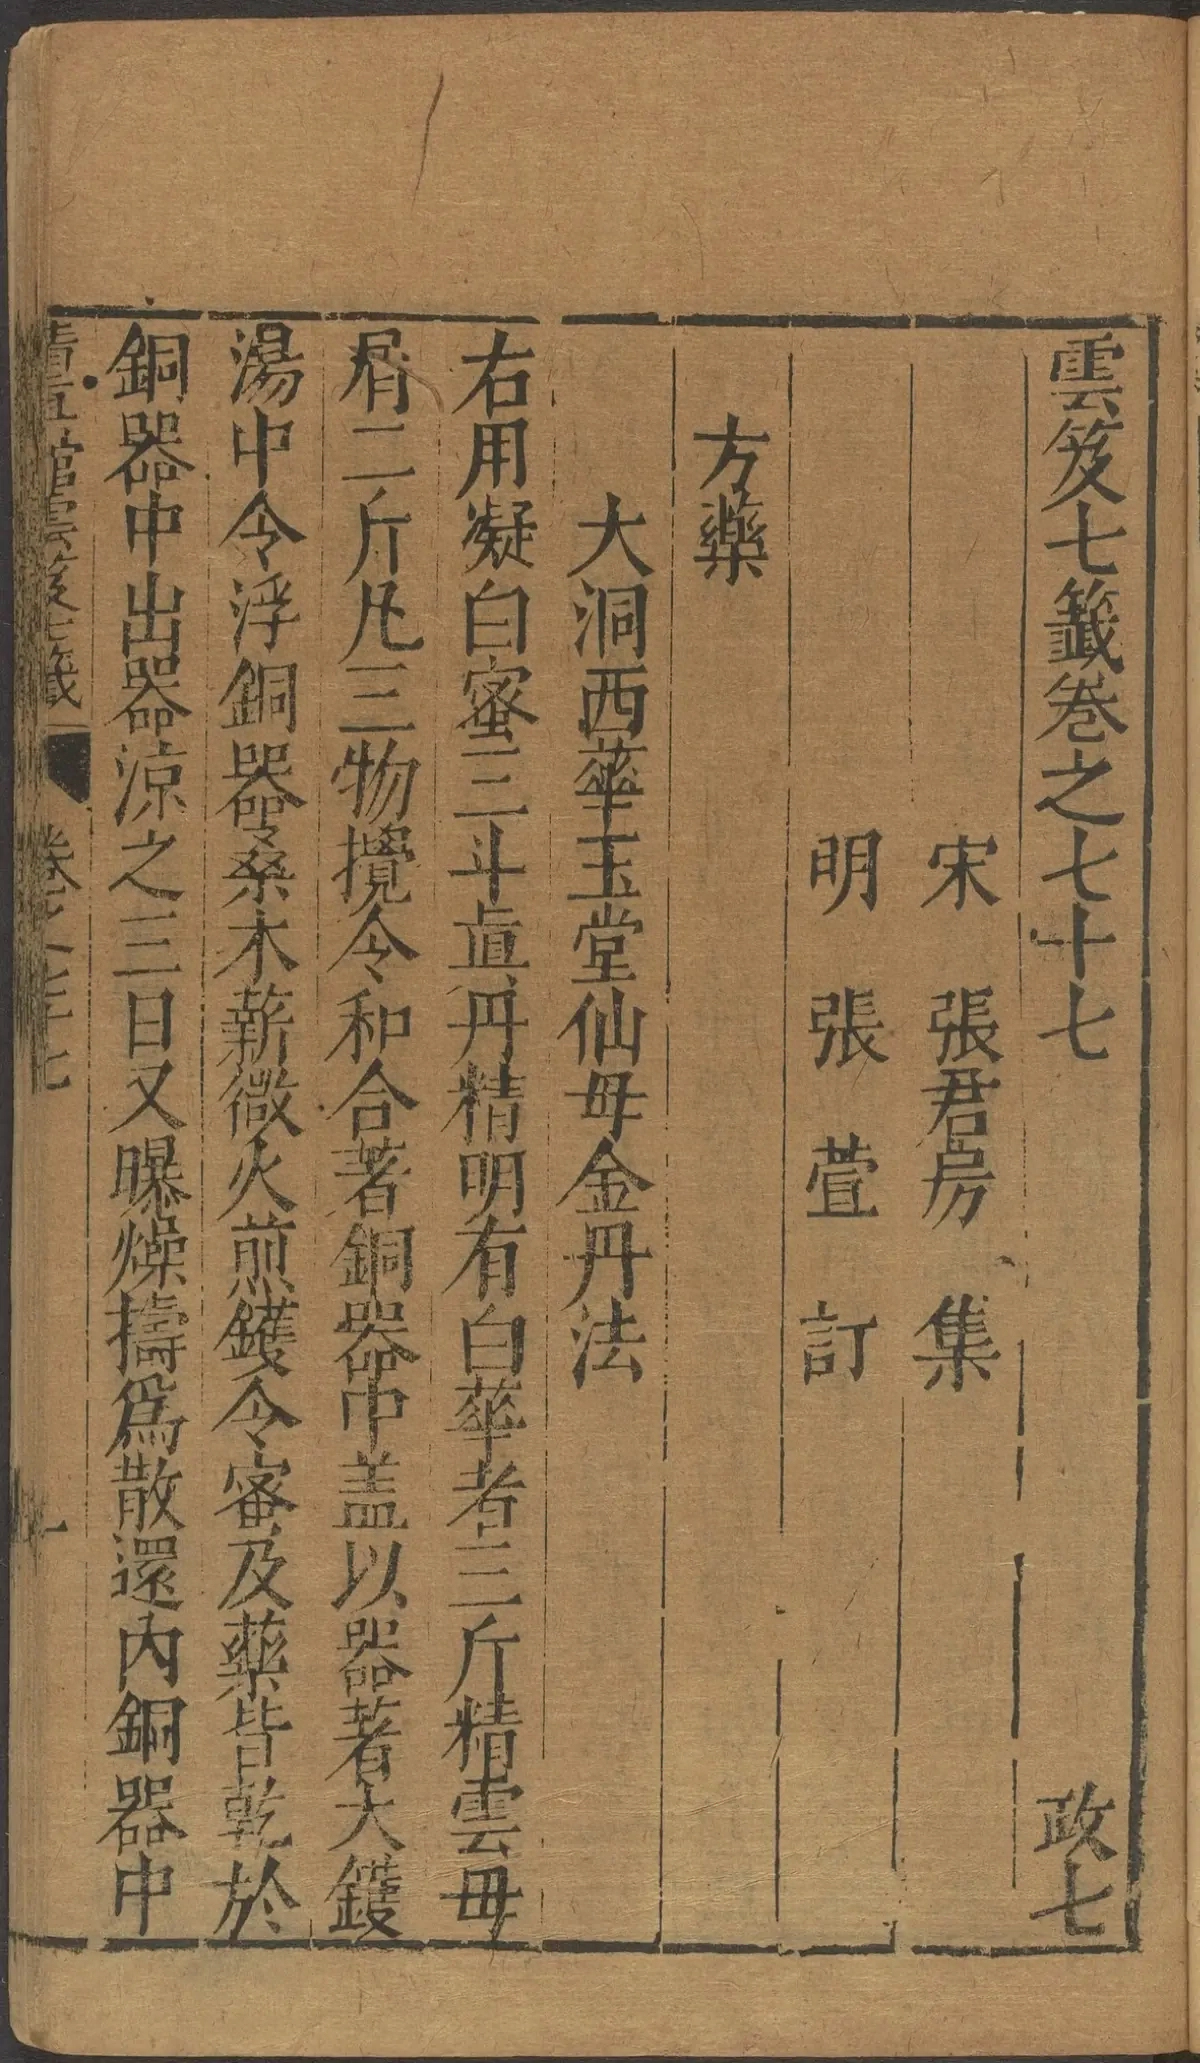 雲笈七籤卷之七十七 政七
宋 張君房 集
明 張萱 訂
方藥
大洞西華玉堂仙母金丹法
右用凝白蜜三斗真丹精明有白華者三斤精雲母
屑二斤凡三物攪令和合著銅器中盖以器著大鑊
湯中令浮銅器令桑木薪微火煎鑊令蜜及藥皆乾於
銅器中出器涼之三日又曝燥擣爲散還內銅器中
清真館雲笈七籤 卷之七十七 一